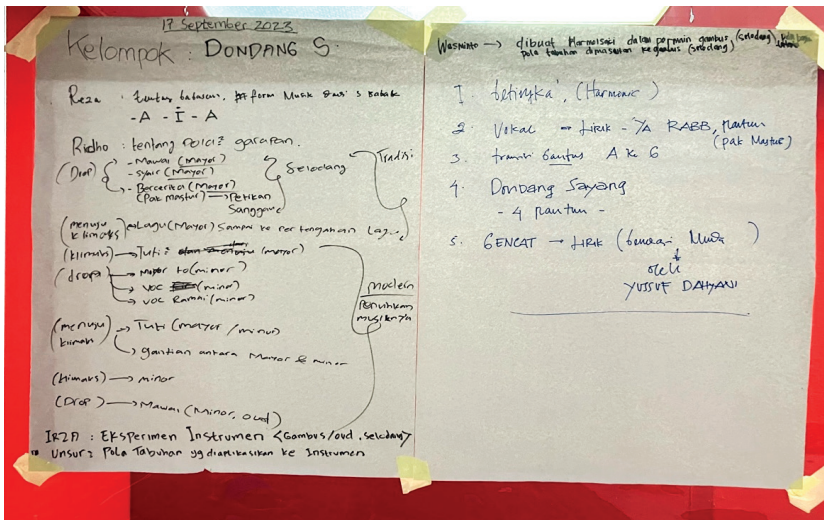 17 September 2023
Kelompok : DONDANG S.
Reza : tentang batasan, form Musik dari 3 Babak
- A - I - A
Ridho : tentang pola² garapan.
(Drop) - Mawal (Mayor)
- Syair (Mayor)
- Bercerita (Mayor)
(Pak Mastur) → Petikan
Sanggam
Selodang
Tradisi
(menuju klimaks) Lagu (Mayor) Sampai ke pertengahan Lagu
(klimaks) → Tuti² (mayor)
(drop) → Mayor to (minor)
→ voc (minor)
→ voc Ramai (minor)
modern
PENUHKAN
MUSIKNYA
(menuju klimaks) → Tuti (mayor / minor)
gantian antara Mayor & minor
(klimaks) → minor
(Drop) → Mawal (Minor, oud)
IRZA : Eksperimen Instrumen <Gambus/oud, selodang>
Unsur² Pola Tabuhan yg diaplikasikan ke Instrumen
Waspinto → dibuat Harmonisasi dalam permain gambus (selodang)
Pola tabuhan dimasukan ke gambus (selodang)
1. betingka', (Harmonic)
2. Vokal → Lirik - YA RABB, Pantun
(pak Mastur)
3. transisi Gambus A ke G
4. Dondang Sayang
- 4 Pantun -
5. GENCAT → Lirik ( Muda )
oleh
YUSSUF DAHYANI